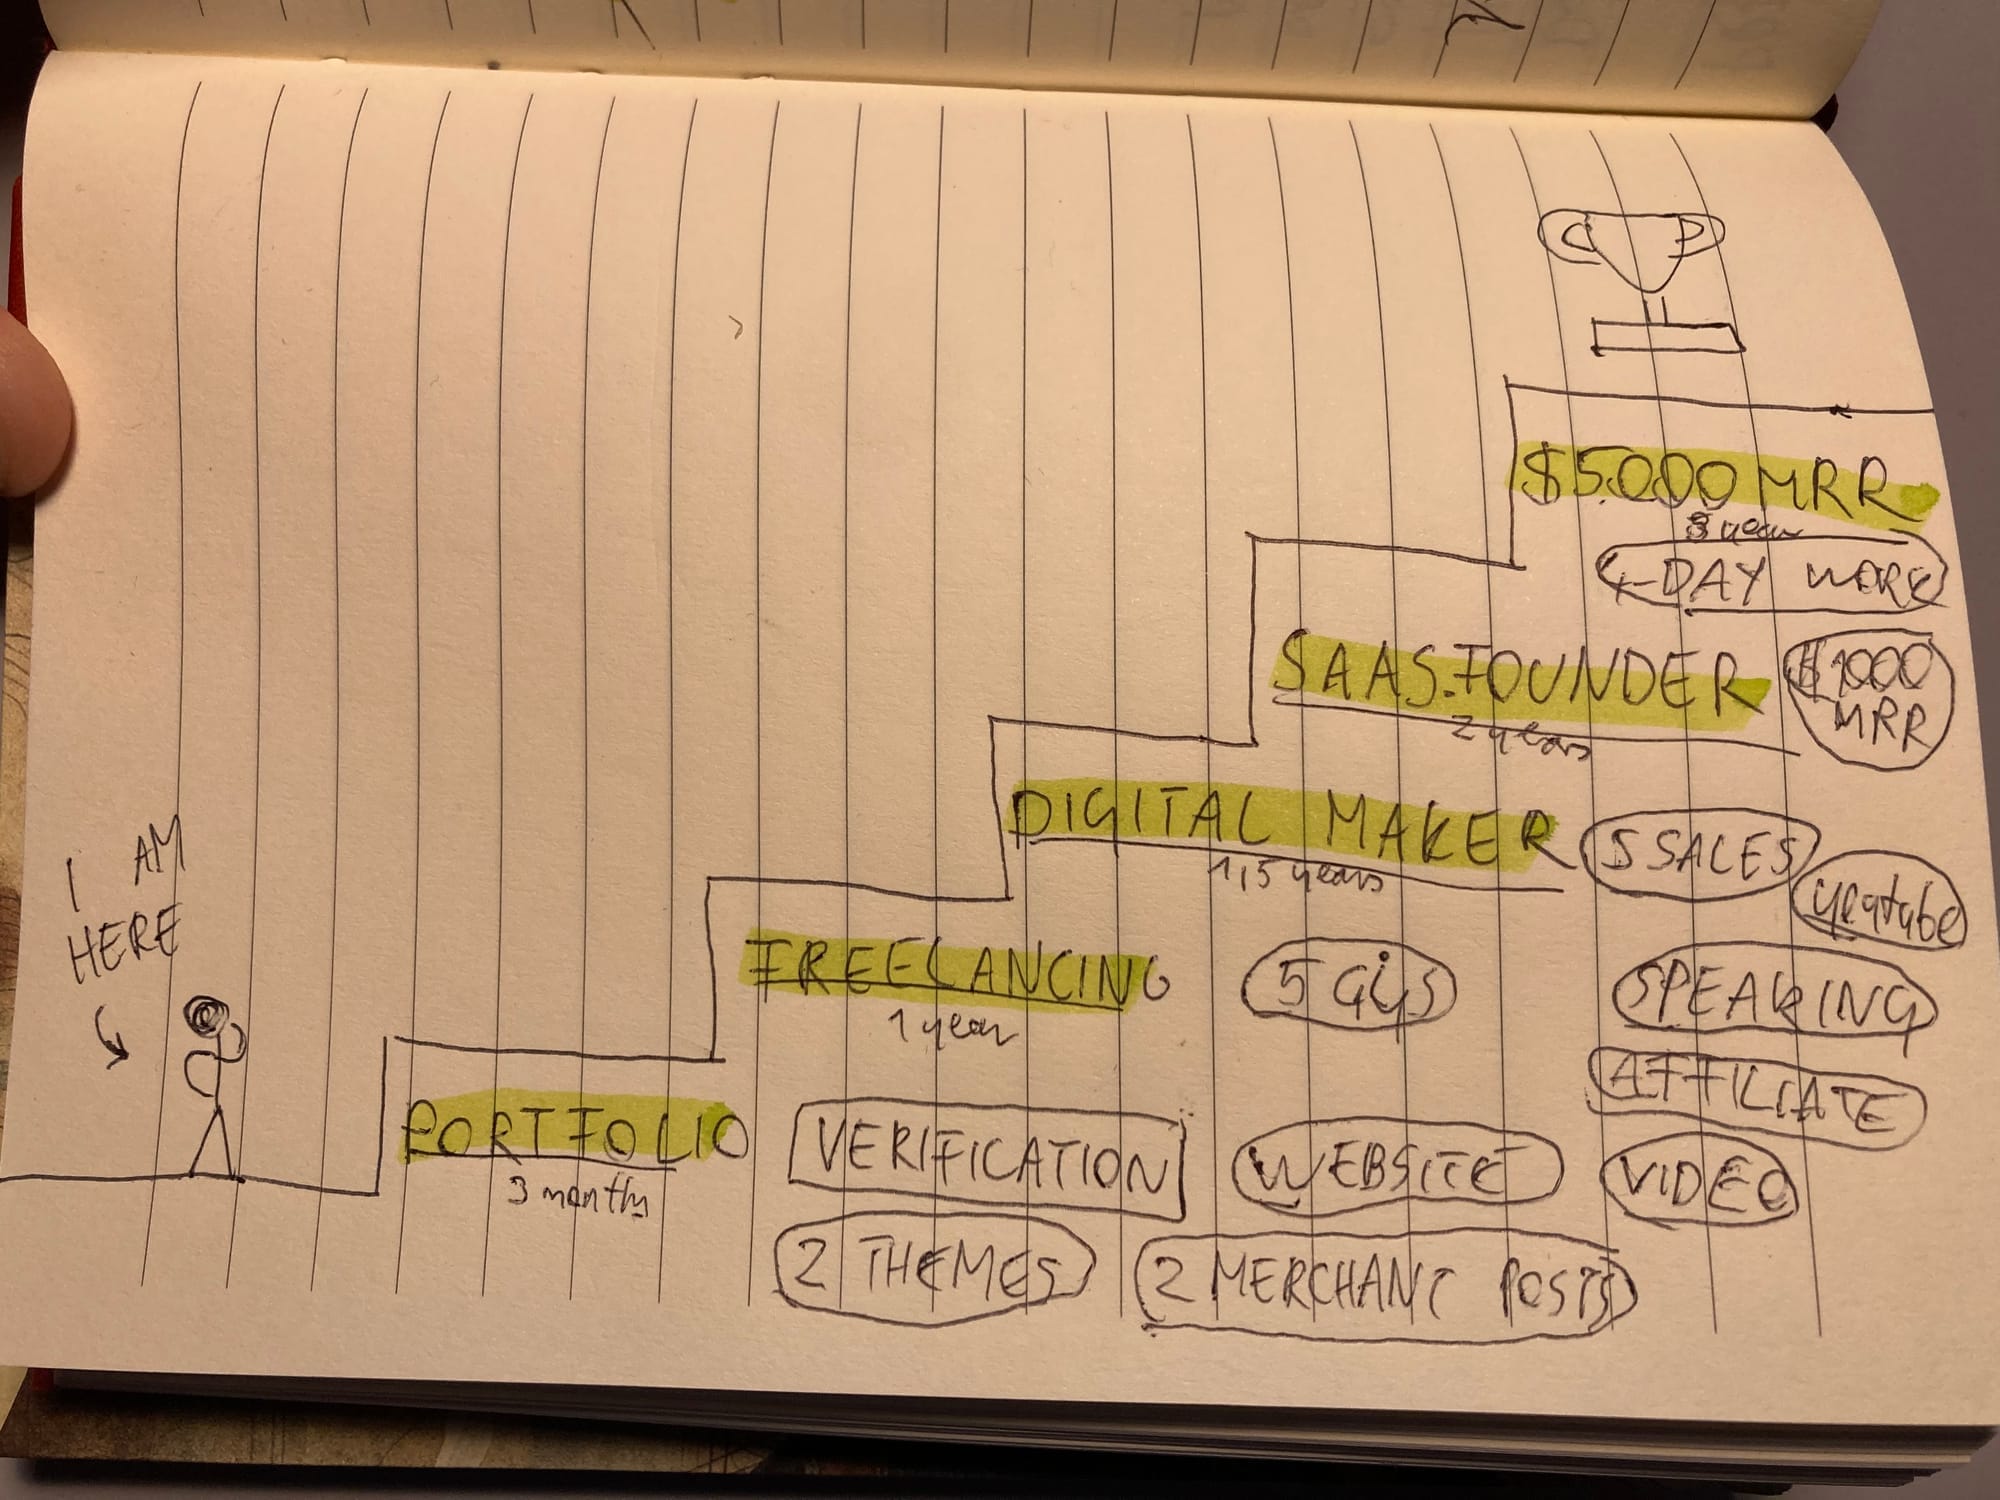 $5.000 MRR
3 years
4-DAY WORK
SAAS FOUNDER
2 years
$1000
MRR
DIGITAL MAKER
1,5 years
5 SALES
youtube
I AM
HERE
FREELANCING
1 year
5 GigS
SPEAKING
AFFILIATE
PORTFOLIO
3 months
VERIFICATION
WEBSITE
VIDEO
2 THEMES
2 MERCHANT POSTS